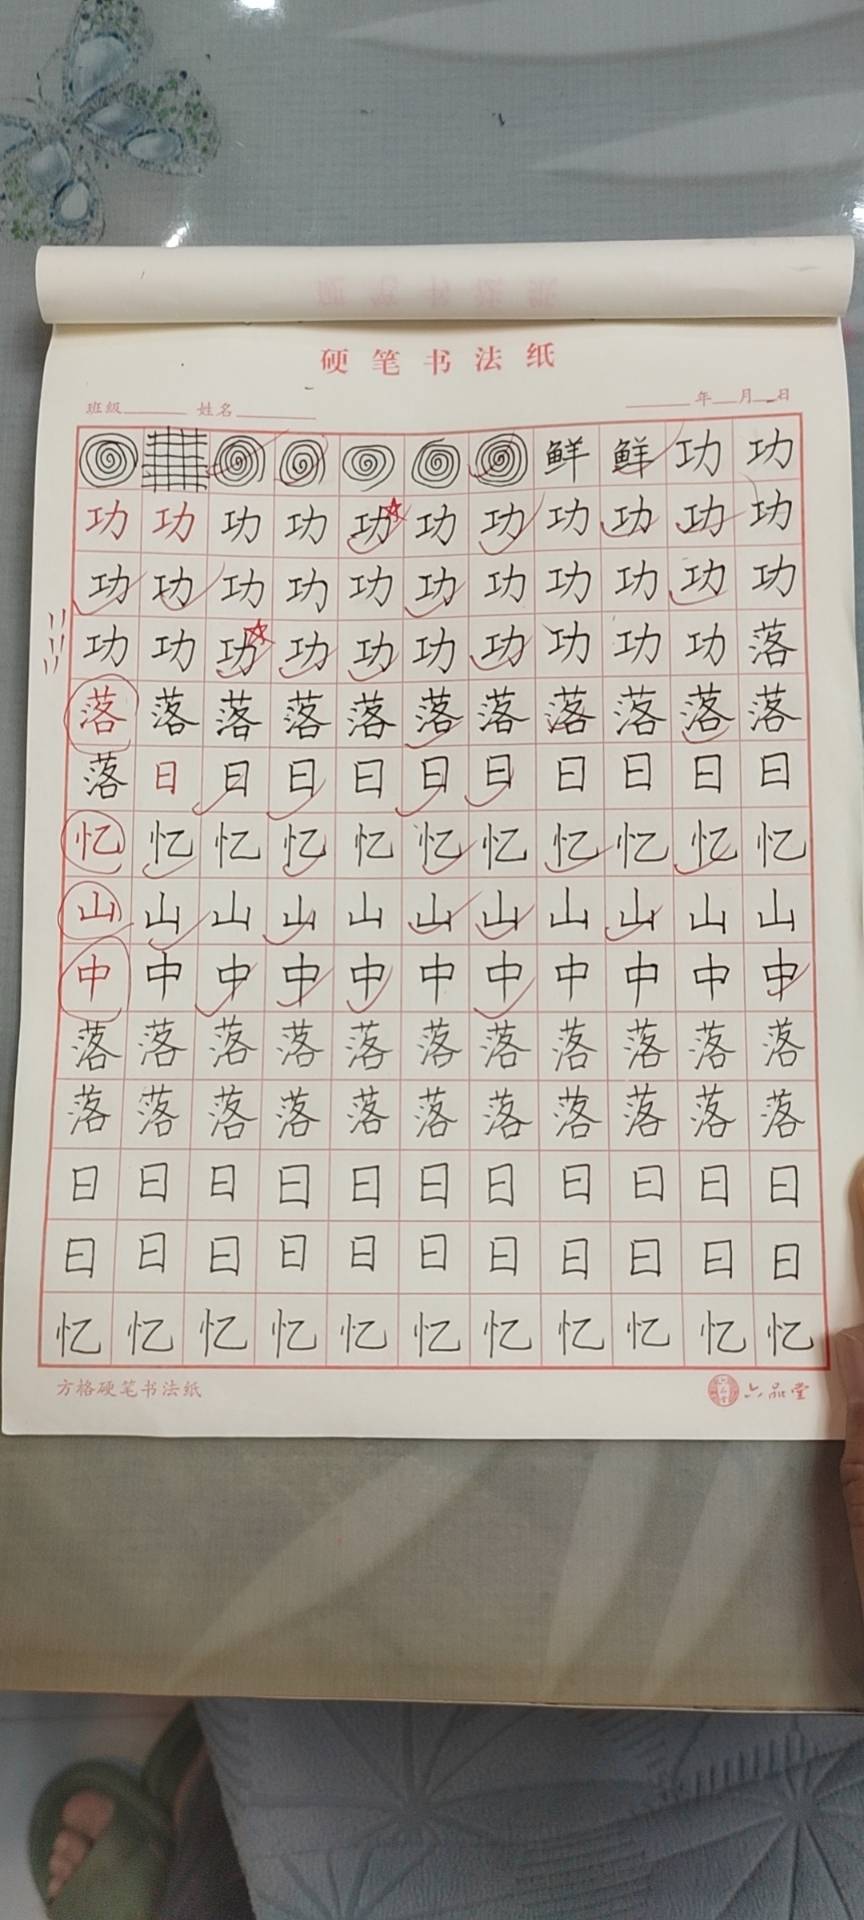 硬笔书法纸
班级 姓名 年 月 日
鲜 鲜 功 功
功 功 功 功 功 功 功 功 功 功 功
功 功 功 功 功 功 功 功 功 功 功
功 功 功 功 功 功 功 功 功 功 落
落 落 落 落 落 落 落 落 落 落 落
落 日 日 日 日 日 日 日 日 日 日
忆 忆 忆 忆 忆 忆 忆 忆 忆 忆 忆
山 山 山 山 山 山 山 山 山 山 山
中 中 中 中 中 中 中 中 中 中 中
落 落 落 落 落 落 落 落 落 落 落
落 落 落 落 落 落 落 落 落 落 落
日 日 日 日 日 日 日 日 日 日 日
日 日 日 日 日 日 日 日 日 日 日
忆 忆 忆 忆 忆 忆 忆 忆 忆 忆 忆
方格硬笔书法纸 六品堂